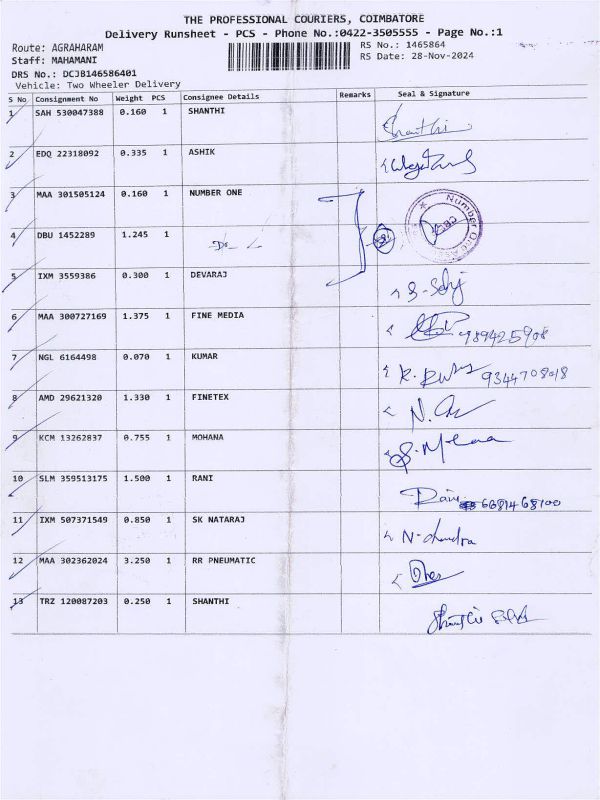 THE PROFESSIONAL COURIERS, COIMBATORE
Delivery Runsheet - PCS - Phone No.:0422-3505555 - Page No.:1
Route: AGRAHARAM
RS No.: 1465864
Staff: MAHAMANI
RS Date: 28-Nov-2024
DRS No.: DCJB146586401
Vehicle: Two Wheeler Delivery
S No Consignment No Weight PCS Consignee Details Remarks Seal & Signature
1 SAH 530047388 0.160 1 SHANTHI Shanthi
2 EDQ 22318092 0.335 1 ASHIK
3 MAA 301505124 0.160 1 NUMBER ONE
4 DBU 1452289 1.245 1
5 IXM 3559386 0.300 1 DEVARAJ
6 MAA 300727169 1.375 1 FINE MEDIA 989425908
7 NGL 6164498 0.070 1 KUMAR 9344708018
8 AMD 29621320 1.330 1 FINETEX
9 KCM 13262837 0.755 1 MOHANA
10 SLM 359513175 1.500 1 RANI Rani
11 IXM 507371549 0.850 1 SK NATARAJ N-chandra
12 MAA 302362024 3.250 1 RR PNEUMATIC
13 TRZ 120087203 0.250 1 SHANTHI